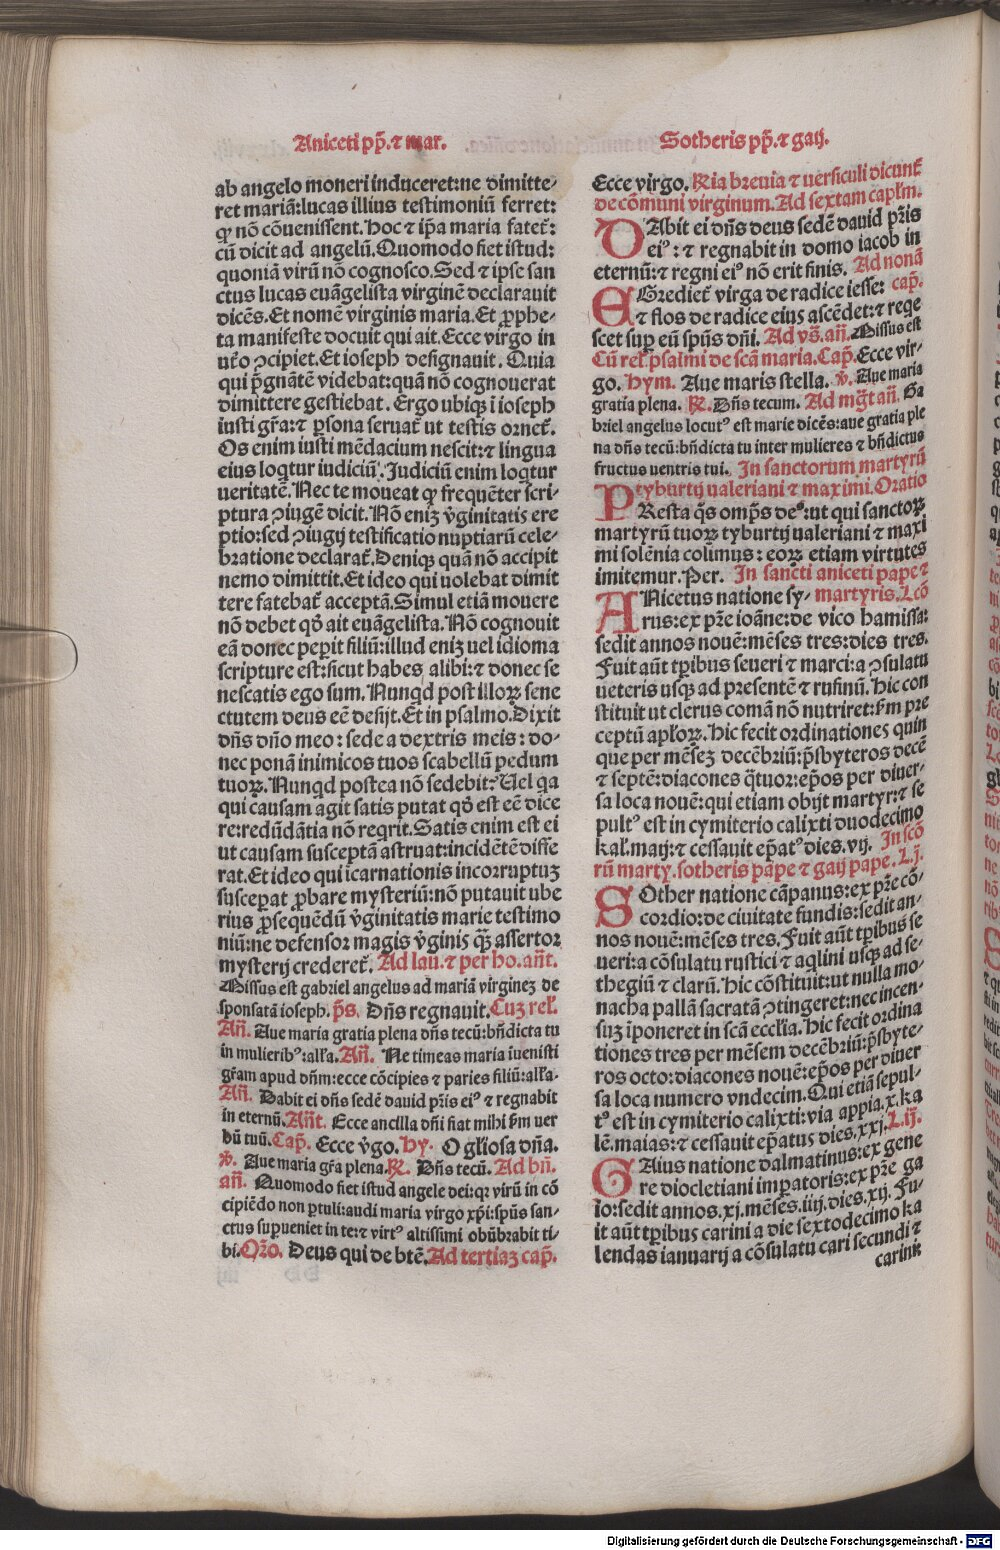 Aniceti pp̄. ⁊ mar.
Sotheris pp̄. ⁊ gaij.
ab angelo moneri induceret: ne dimitte-
ret mariā: lucas illius testimoniū ferret:
ꝙ nō cōuenissent. Hoc ⁊ ip̄a maria fatet̄:
cū dicit ad angelū. Quomodo fiet istud:
quoniā virū nō cognosco. Sed ⁊ ipse san
ctus lucas euāgelista virginē declarauit
dicēs. Et nomē virginis maria. Et ꝓphe-
ta manifeste docuit qui ait. Ecce virgo in
ut̄o ꝯcipiet. Et ioseph designauit. Quia
qui p̄gnātē videbat: quā nō cognouerat
dimittere gestiebat. Ergo ubiqꝫ ī ioseph
iusti gr̄a: ⁊ ꝑsona seruat̄ ut testis ornet̄.
Os enim iusti mēdacium nescit: ⁊ lingua
eius loqtur iudiciū. Judiciū enim loqtur
ueritatē. Nec te moueat ꝙ frequēter scri-
ptura ꝯiugē dicit. Nō enīꝫ v̄ginitatis ere
ptio: sed ꝯiugij testificatio nuptiarū cele-
bratione declarat̄. Deniqꝫ quā nō accipit
nemo dimittit. Et ideo qui uolebat dimit
tere fatebat̄ acceptā. Simul etiā mouere
nō debet qď ait euāgelista. Nō cognouit
eā donec peꝑit filiū: illud enīꝫ uel idioma
scripture est: sicut habes alibi: ⁊ donec se
nescatis ego sum. Nunqd post illoꝝ sene
ctutem deus eē desijt. Et in psalmo. Dixit
dn̄s dn̄o meo: sede a dextris meis: do-
nec ponā inimicos tuos scabellū pedum
tuoꝝ. Nunqd postea nō sedebit: Uel qa
qui causam agit satis putat qď est eē dice
re: redūdātia nō reqrit. Satis enim est ei
ut causam susceptā astruat: incidētē diffe
rat. Et ideo qui īcarnationis incorruptuꝫ
susceꝑat ꝓbare mysteriū: nō putauit ube
rius ꝓsequēdū v̄ginitatis marie testimo
niū: ne defensor magis v̄ginis q̄ꝫ assertor
mysterij crederet̄. Ad lau. ⁊ per ho. an̄t.
Missus est gabriel angelus ad mariā virgineꝫ de
sponsatā ioseph. p̄s. Dn̄s regnauit. Cuꝫ rel̄.
An̄. Aue maria gratia plena dn̄s tecū: bn̄dicta tu
in mulieribꝰ: all̄a. An̄. Ne timeas maria iuenisti
gr̄am apud dn̄m: ecce cōcipies ⁊ paries filiū: all̄a.
An̄. Dabit ei dn̄s sedē dauid pr̄is eiꝰ ⁊ regnabit
in eternū. An̄t. Ecce ancilla dn̄i fiat mihi ẜm uer
bū tuū. Cap̄. Ecce v̄go. Hy. O gl̄iosa dn̄a.
℣. Aue maria gr̄a plena. ℟. Dn̄s tecū. Ad bn̄.
an̄. Quomodo fiet istud angele dei: qꝛ virū in cō
cipiēdo non ꝑtuli: audi maria virgo xp̄i: spūs san-
ctus suꝑueniet in te: ⁊ virtꝰ altissimi obūbrabit ti-
bi. Or̄o. Deus qui de btē. Ad tertiaꝫ cap̄.
Ecce virgo. ℟ia breuia ⁊ uersiculi dicunt̄
de cōmuni virginum. Ad sextam capl̄m.
DAbit ei dn̄s deus sedē dauid pr̄is
eiꝰ: ⁊ regnabit in domo iacob in
eternū: ⁊ regni eiꝰ nō erit finis. Ad nonā
EGrediet̄ virga de radice iesse: cap̄.
⁊ flos de radice eius ascēdet: ⁊ reqe
scet suꝑ eū spūs dn̄i. Ad vs̄. an̄. Missus est
Cū rel̄. psalmi de scā maria. Cap̄. Ecce vir-
go. Hym. Aue maris stella. ℣. Aue maria
gratia plena. ℟. Dn̄s tecum. Ad mg̅t an̄. Ga
briel angelus locutꝰ est marie dicēs: aue gratia ple
na dn̄s tecū: bn̄dicta tu inter mulieres ⁊ bn̄dictus
fructus uentris tui. In sanctorum martyrū
tyburtij ualeriani ⁊ maximi. Oratio
PResta q̄s omp̄s deꝰ: ut qui sanctoꝝ
martyrū tuoꝝ tyburtij ualeriani ⁊ maxi
mi solēnia colimus: eoꝝ etiam virtutes
imitemur. Per. In sancti aniceti pape ⁊
ANicetus natione sy- martyris. Lcō
rus: ex pr̄e ioāne: de vico hamissa:
sedit annos nouē: mēses tres: dies tres.
Fuit aūt tp̄ibus seueri ⁊ marci: a ꝯsulatu
ueteris usqꝫ ad presentē ⁊ rufinū. Hic con
stituit ut clerus comā nō nutriret: ẜm pre
ceptū apl̄oꝝ. Hic fecit ordinationes quin
que per mēseꝫ decēbriū: p̄sbyteros decē
⁊ septē: diacones q̄tuor: ep̄os per diuer-
sa loca nouē: qui etiam obijt martyr: ⁊ se
pultꝰ est in cymiterio calixti duodecimo
kal̄. maij: ⁊ cessauit ep̄atꝰ dies. vij. In scō
rū marty. sotheris pape ⁊ gaij pape. L. j.
SOther natione cāpanus: ex pr̄e cō-
cordio: de ciuitate fundis: sedit an-
nos nouē: mēses tres. Fuit aūt tp̄ibus se
ueri: a cōsulatu rustici ⁊ aqlini usqꝫ ad se-
thegiū ⁊ clarū. Hic cōstituit: ut nulla mo-
nacha pallā sacratā ꝯtingeret: nec incen-
suꝫ īponeret in scā eccl̄ia. Hic fecit ordina
tiones tres per mēsem decēbriū: p̄sbyte-
ros octo: diacones nouē: ep̄os per diuer
sa loca numero vndecim. Qui etiā sepul-
tꝰ est in cymiterio calixti: via appia. x. ka
lē. maias: ⁊ cessauit ep̄atus dies. xxj. L. ij.
GAius natione dalmatinus: ex gene
re diocletiani imꝑatoris: ex pr̄e ga
io: sedit annos. xj. mēses. iiij. dies. xij. Fu-
it aūt tp̄ibus carini a die sextodecimo ka
lendas ianuarij a cōsulatu cari secundi ⁊
carini
Digitalisierung gefördert durch die Deutsche Forschungsgemeinschaft - DFG